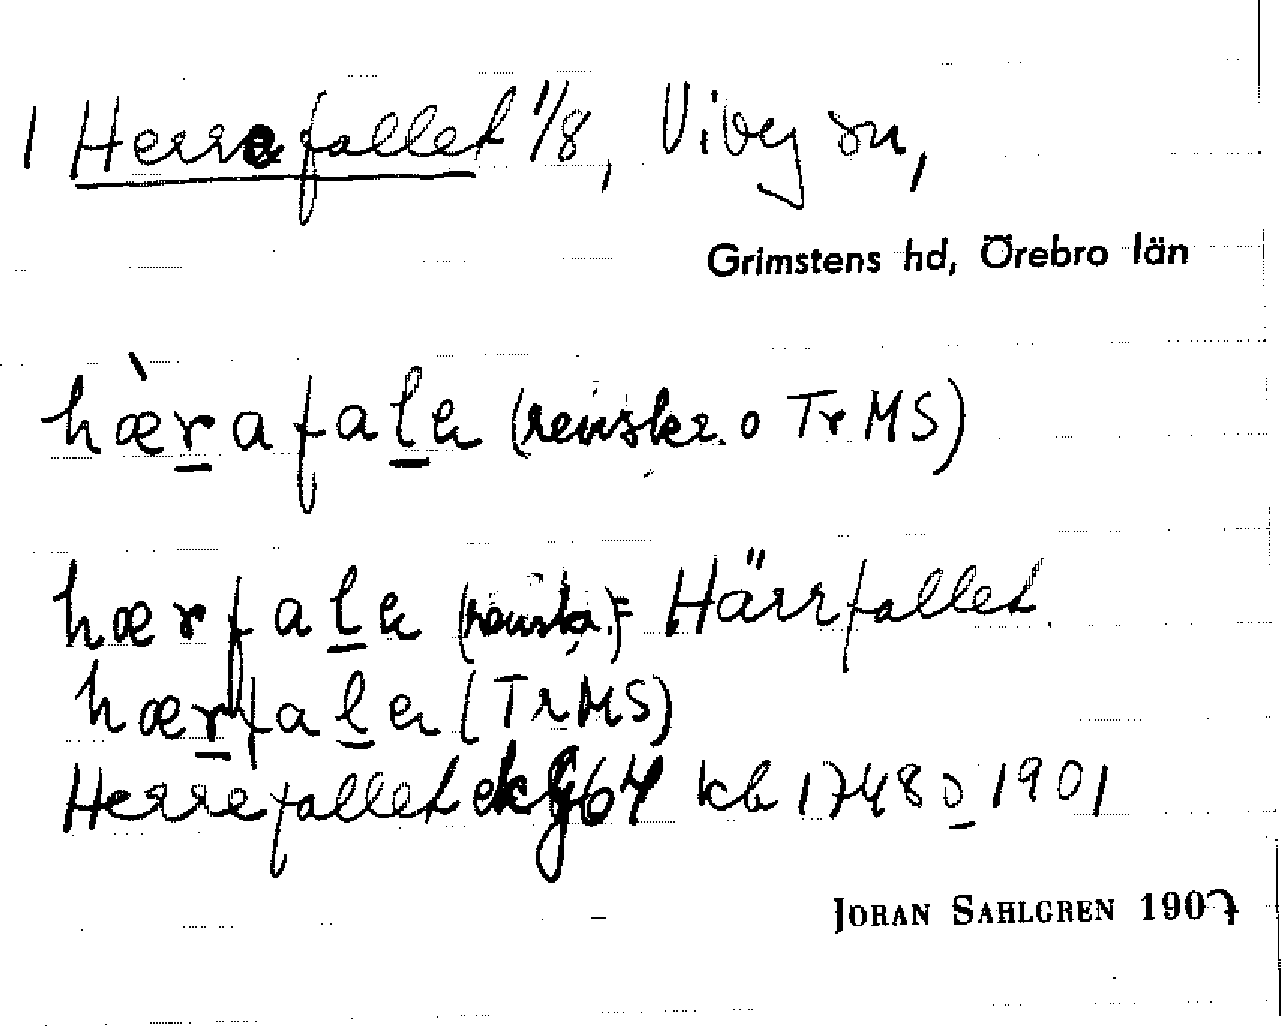 1 Herrefallet 1/8, Viby sn,
Grimstens hd, Örebro län
hæ̀rafalɐ (renskr. o Tr MS)
hærfalɐ (renskr.) = Härrfallet
hærfalɐ (Tr MS)
Herrefallet kb 1748 o 1901
JORAN SAHLGREN 1907